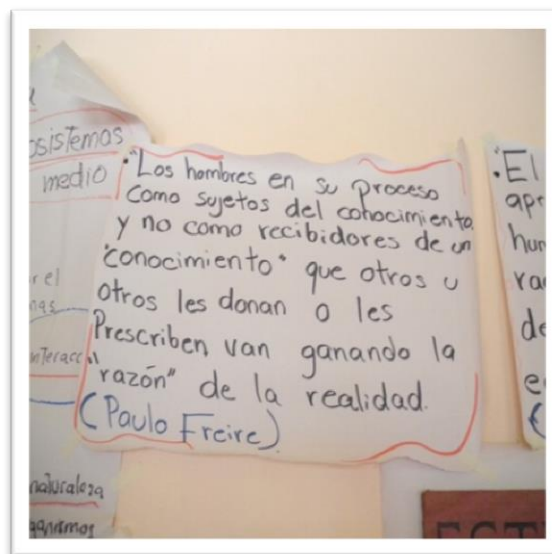 osistemas
medio
"Los hombres en su proceso
como sujetos del conocimiento
y no como recibidores de un
"conocimiento" que otros u
otros les donan o les
Prescriben van ganando la
"razón" de la realidad.
(Paulo Freire)
naturaleza
"El